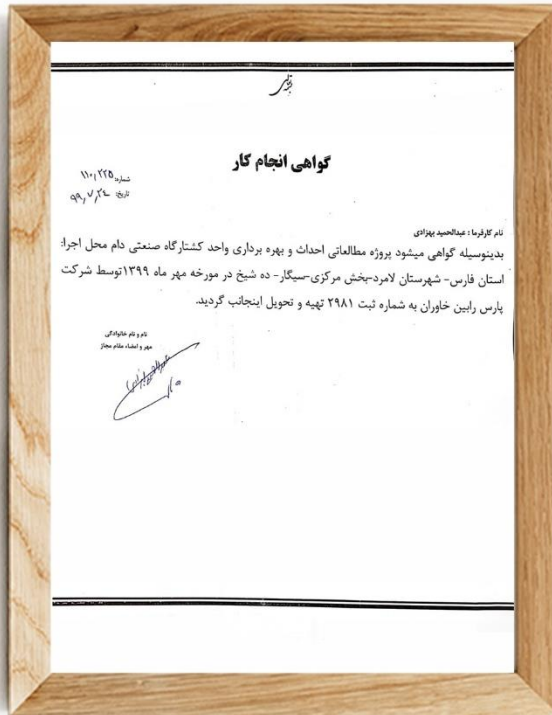 گواهی انجام کار
شماره: ۱۱۰٫۲۲۵
تاریخ: ۹۹٫۷٫۲۴
نام کارفرما : عبدالحمید بهزادی
بدینوسیله گواهی میشود پروژه مطالعاتی احداث و بهره برداری واحد کشتارگاه صنعتی دام محل اجرا:
استان فارس- شهرستان لامرد-بخش مرکزی-سیگار- ده شیخ در مورخه مهر ماه ۱۳۹۹توسط شرکت
پارس رابین خاوران به شماره ثبت ۲۹۸۱ تهیه و تحویل اینجانب گردید.
نام و نام خانوادگی
مهر و امضاء مقام مجاز